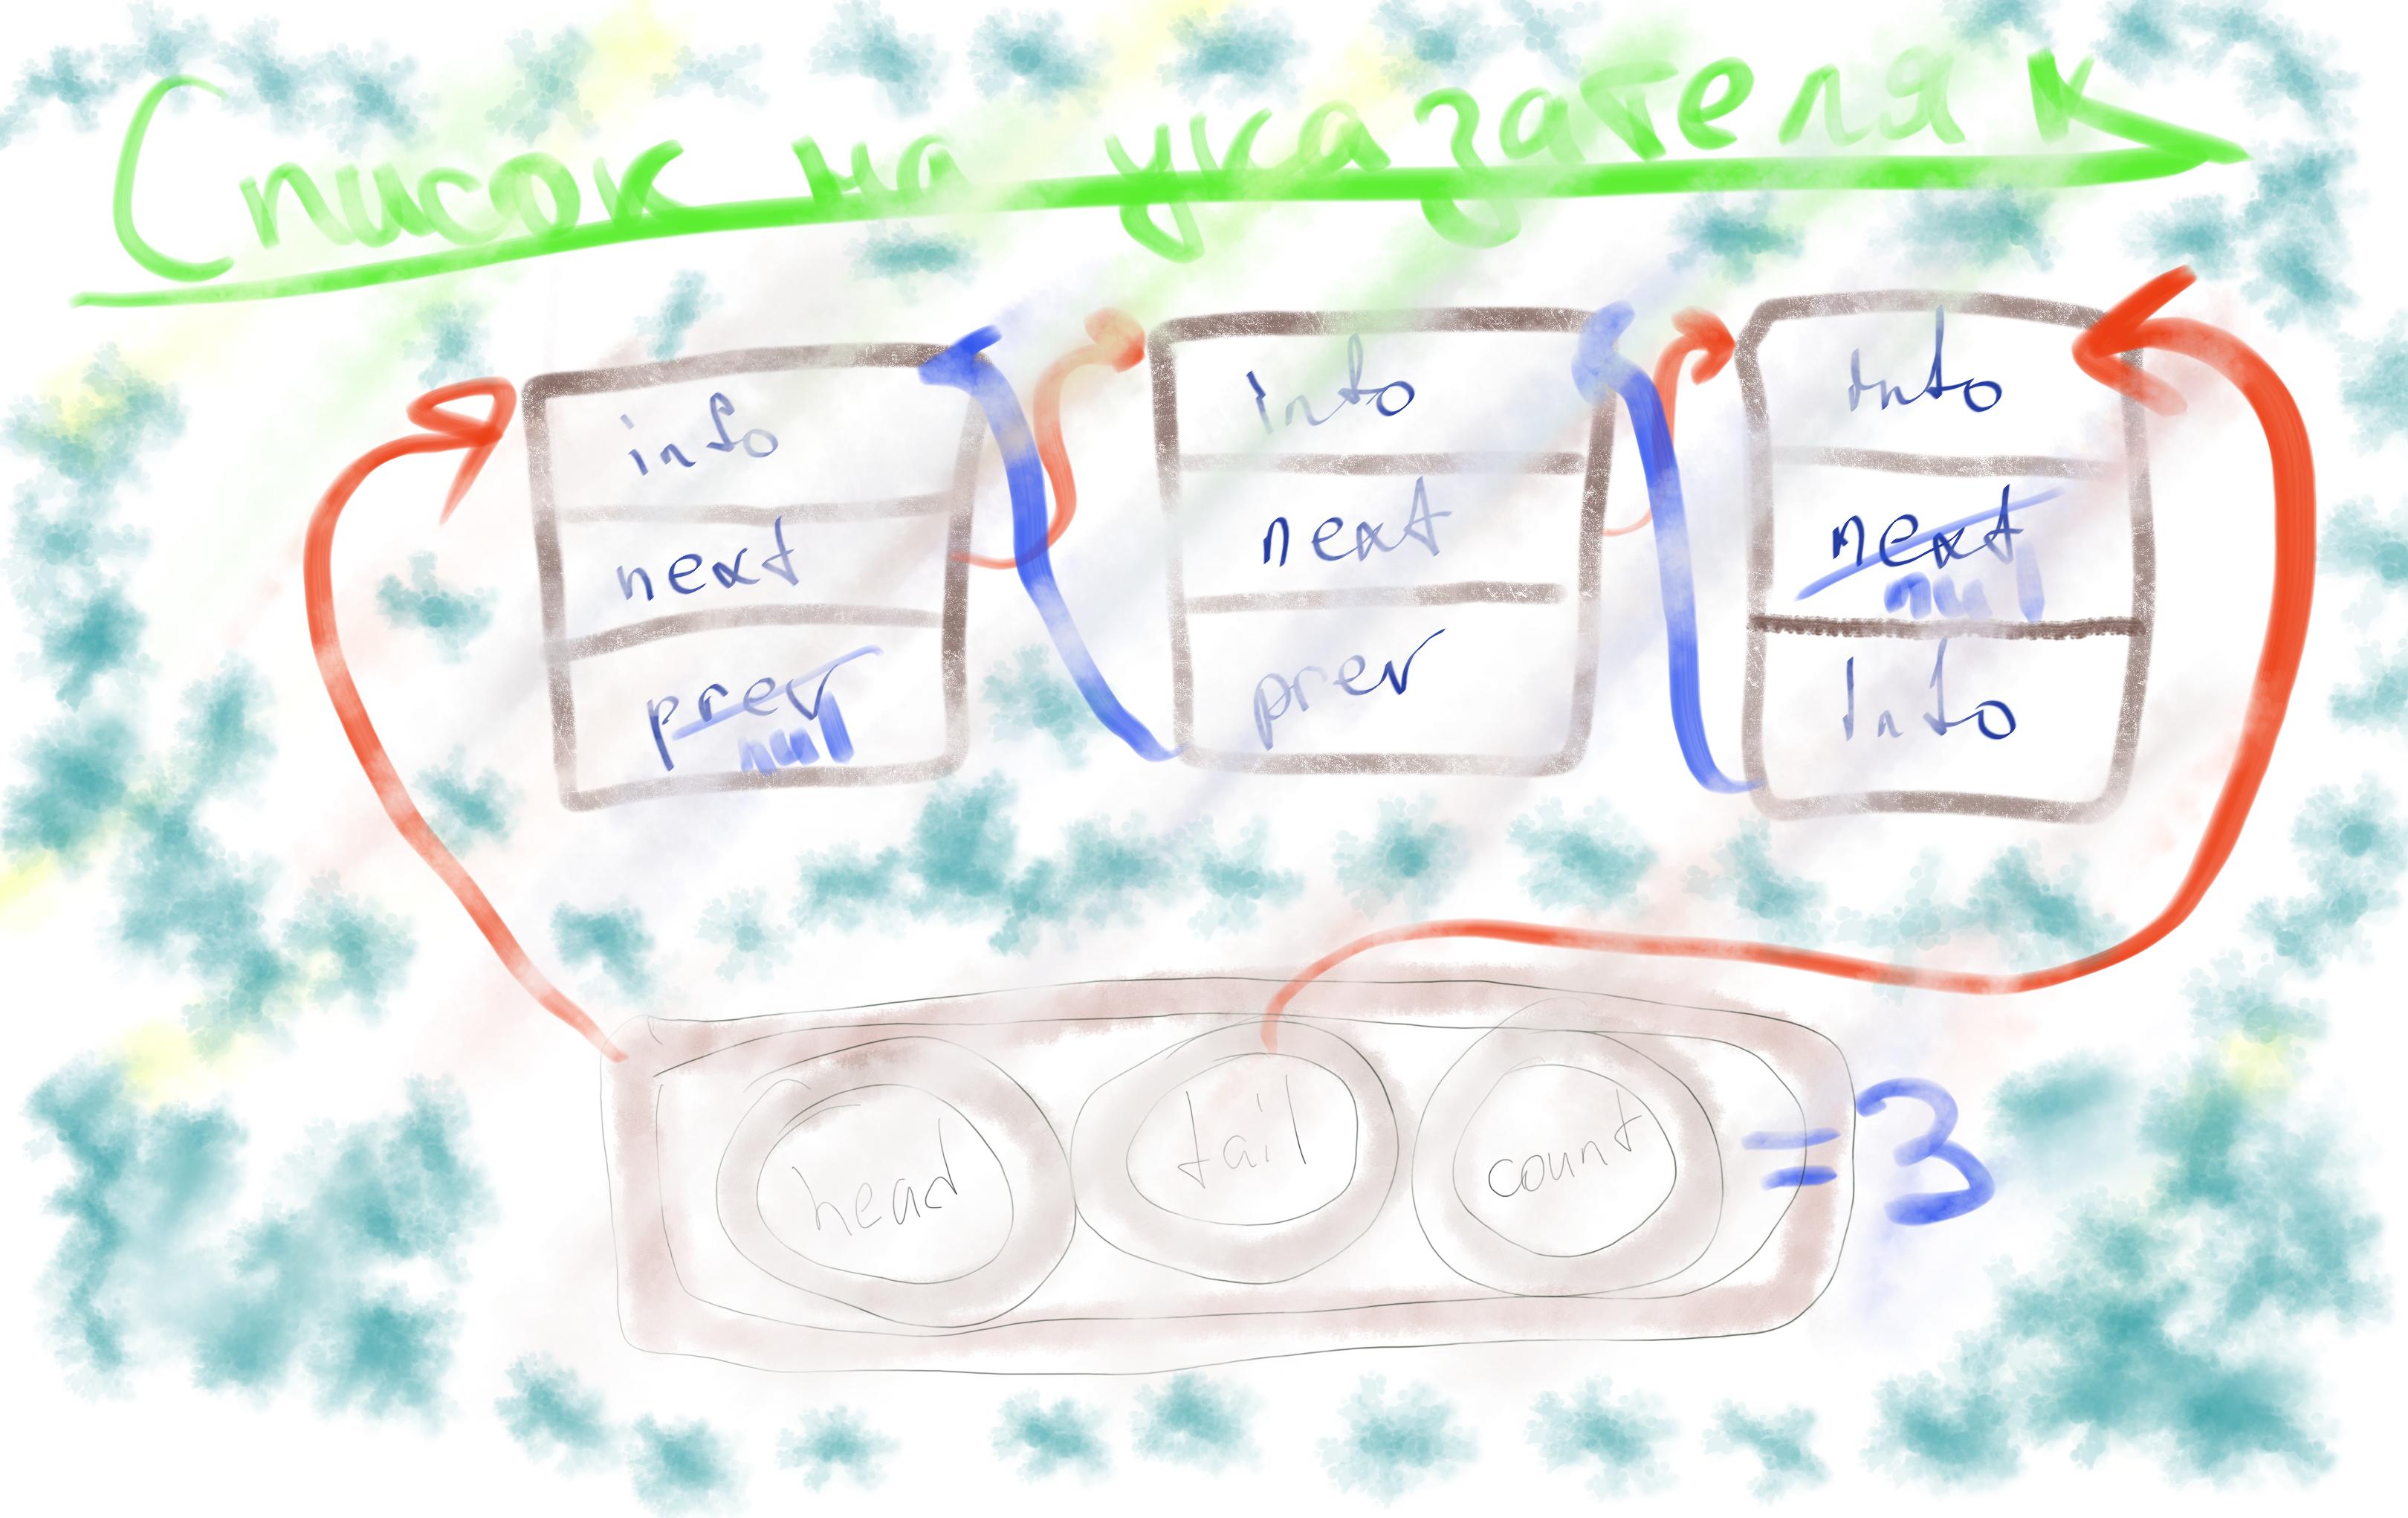 Список на указателях
info
next
prev
nul
info
next
prev
Info
next
nul
Info
head
tail
count
= 3